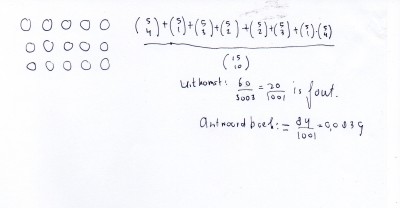 (5 4) + (5 1) + (5 3) + (5 2) + (5 2) + (5 3) + (5 1) · (5 4)
(15 10)
Uitkomst: 60/3003 = 20/1001 is fout.
Antwoord boek: = 84/1001 = 0,0839